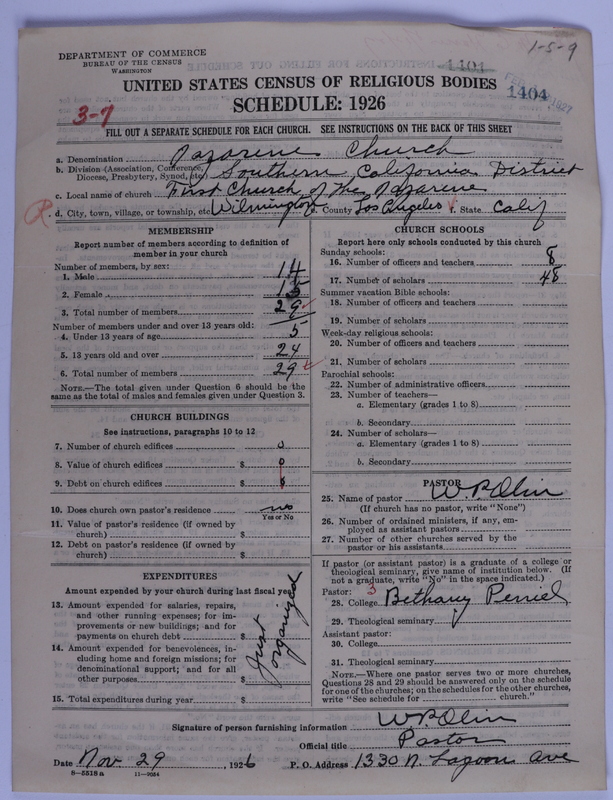 1-5-9
DEPARTMENT OF COMMERCE
BUREAU OF THE CENSUS
WASHINGTON
1401
1404
UNITED STATES CENSUS OF RELIGIOUS BODIES
SCHEDULE: 1926
3-7
FILL OUT A SEPARATE SCHEDULE FOR EACH CHURCH. SEE INSTRUCTIONS ON THE BACK OF THIS SHEET
a. Denomination Nazarene Church
b. Division (Association, Conference, Diocese, Presbytery, Synod, etc.) Southern California District
c. Local name of church First Church of the Nazarene
d. City, town, village, or township, etc. Wilmington e. County Los Angeles f. State Calif
MEMBERSHIP
Report number of members according to definition of
member in your church
Number of members, by sex:
1. Male 14
2. Female 15
3. Total number of members 29
Number of members under and over 13 years old:
4. Under 13 years of age 5
5. 13 years old and over 24
6. Total number of members 29
NOTE.—The total given under Question 6 should be
same as the total of males and females given under Question 3.
CHURCH BUILDINGS
See instructions, paragraphs 10 to 12
7. Number of church edifices 0
8. Value of church edifices $ 0
9. Debt on church edifices $
10. Does church own pastor's residence? no
Yes or No
11. Value of pastor's residence (if owned by
church) $
12. Debt on pastor's residence (if owned by
church) $
EXPENDITURES
Amount expended by your church during last fiscal year
13. Amount expended for salaries, repairs,
and other running expenses; for im-
provements or new buildings; and for
payments on church debt $
14. Amount expended for benevolences, in-
cluding home and foreign missions; for
denominational support; and for all
other purposes $
15. Total expenditures during year $
Just organized
CHURCH SCHOOLS
Report here only schools conducted by this church
Sunday schools:
16. Number of officers and teachers 8
17. Number of scholars 48
Summer vacation Bible schools:
18. Number of officers and teachers
19. Number of scholars
Week-day religious schools:
20. Number of officers and teachers
21. Number of scholars
Parochial schools:
22. Number of administrative officers
23. Number of teachers—
a. Elementary (grades 1 to 8)
b. Secondary
24. Number of scholars—
a. Elementary (grades 1 to 8)
b. Secondary
PASTOR
25. Name of pastor W.P. Olin
(If church has no pastor, write "None")
26. Number of ordained ministers, if any, em-
ployed as assistant pastors
27. Number of other churches served by the
pastor or his assistants
If pastor (or assistant pastor) is a graduate of a college or
theological seminary, give name of institution below. (If
not a graduate, write "No" in the space indicated.)
Pastor: 3
28. College Bethany Peniel
29. Theological seminary
Assistant pastor:
30. College
31. Theological seminary
NOTE.—Where one pastor serves two or more churches,
Questions 28 and 29 should be answered only on the schedule
for one of the churches; on the schedules for the other churches,
write "See schedule for church."
Signature of person furnishing information W.P. Olin
Official title Pastor
Date Nov 29, 1926 P. O. Address 1330 N. Lagoon Ave
8-5518a 11-9054